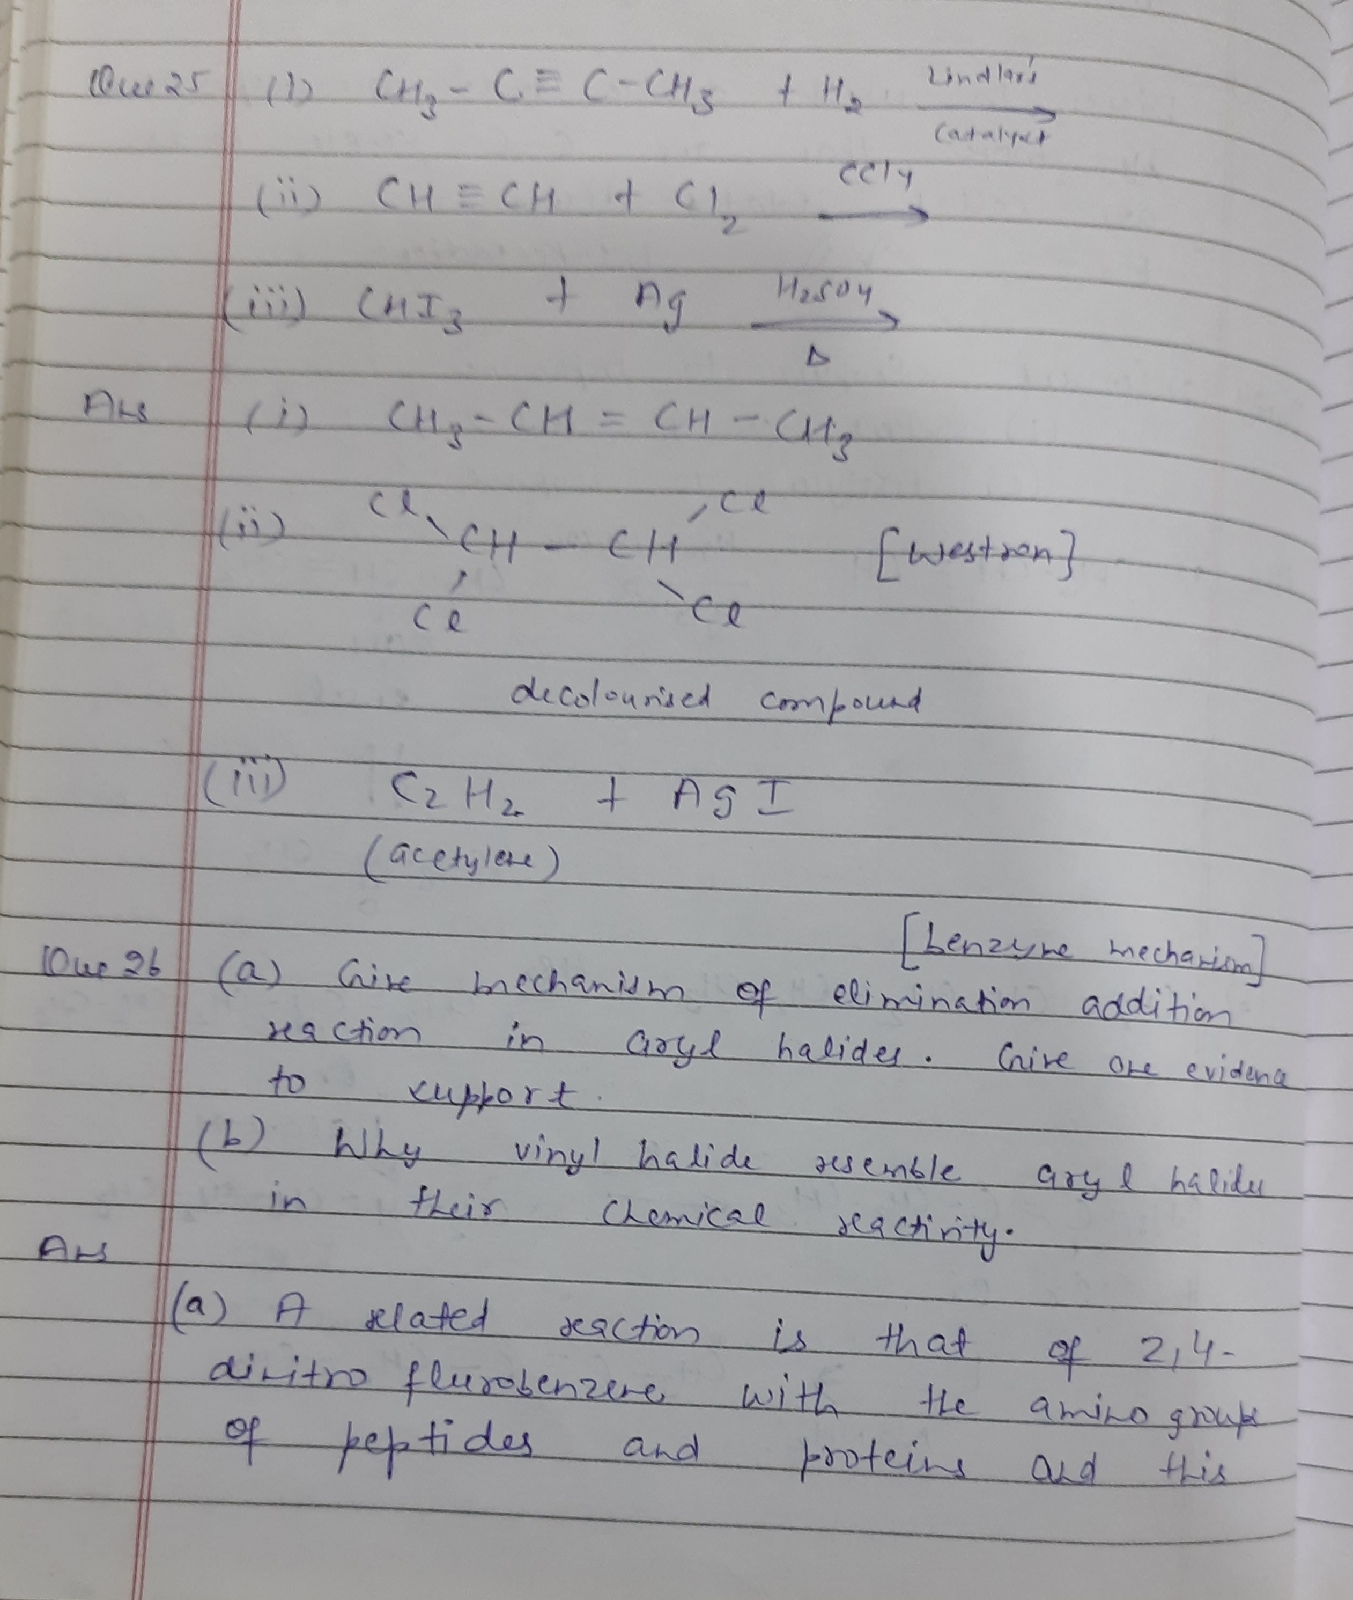 Que 25 (i) CH₃ - C ≡ C - CH₃ + H₂ Lindlar's
Catalyst
(ii) CH ≡ CH + Cl₂ CCl₄
(iii) CHI₃ + Ag H₂SO₄
Δ
Ans (i) CH₃ - CH = CH - CH₃
Cl Cl
(ii) CH - CH [Westron]
Cl Cl
decolourised compound
(iii) C₂H₂ + AgI
(acetylene)
[benzyne mechanism]
Que 26 (a) Give mechanism of elimination addition
reaction in aryl halides. Give one evidence
to support.
(b) Why vinyl halide resemble aryl halides
in their chemical reactivity.
Ans
(a) A related reaction is that of 2,4-
dinitro flurobenzene with the amino groups
of peptides and proteins and this